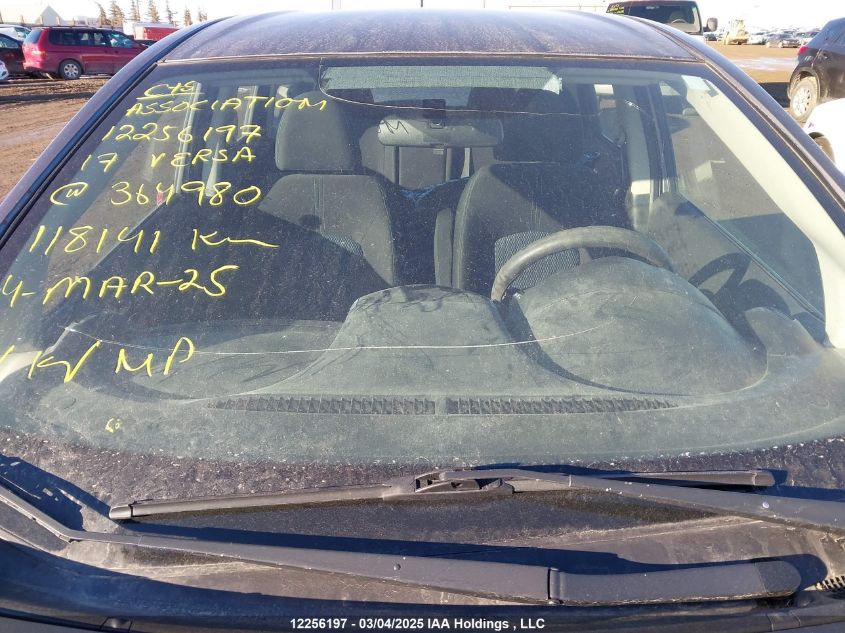 CYS
ASSOCIATION
12256197
17 VERSA
@ 364980
118141 Km
4-MAR-25
1 KY MP
12256197 - 03/04/2025 IAA Holdings , LLC